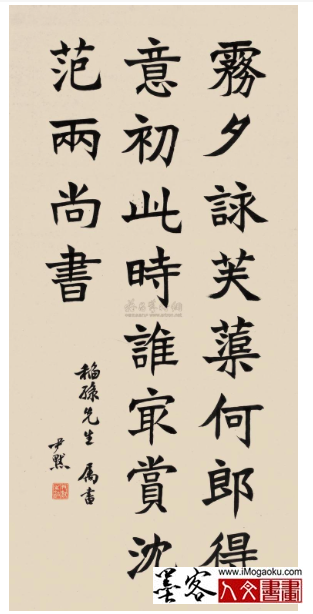 霧夕詠芙蕖何郎得
意初此時誰㝡賞沈
范兩尚書
孫先生属書
尹默
墨客
www.iMogaoku.com
人文書畫